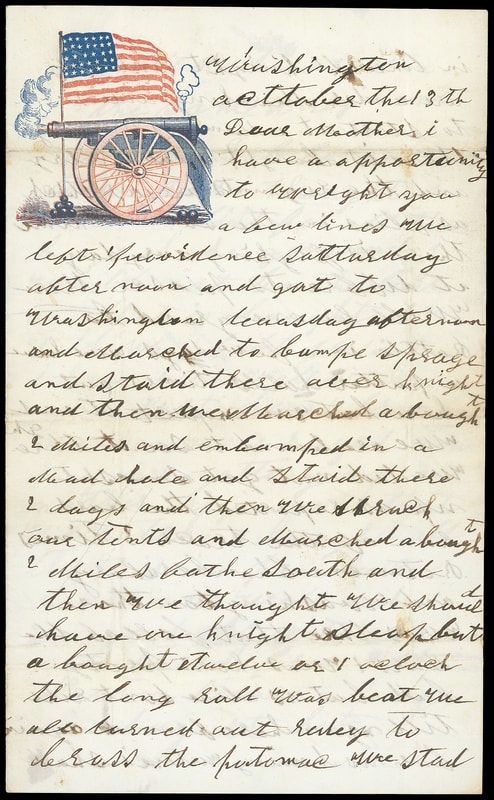 Wrashington
acttober the 13th
Dear Mother i
have a apportunity
to wreight you
a few lines We
left providence satturday
after noon and got to
Wrashington teausday afternoon
and Marched to campe sprage
and staid there over knight
and then we Marched a bought
2 Miles and encamped in a
Mud hole and staid there
2 days and then we struck
our tents and Marched a bought
2 Miles to the South and
then We thought We should
have one knight sleep but
a bought twelve or 1 oclock
the long roll was beat We
all turned out redey to
cross the potomac we stad